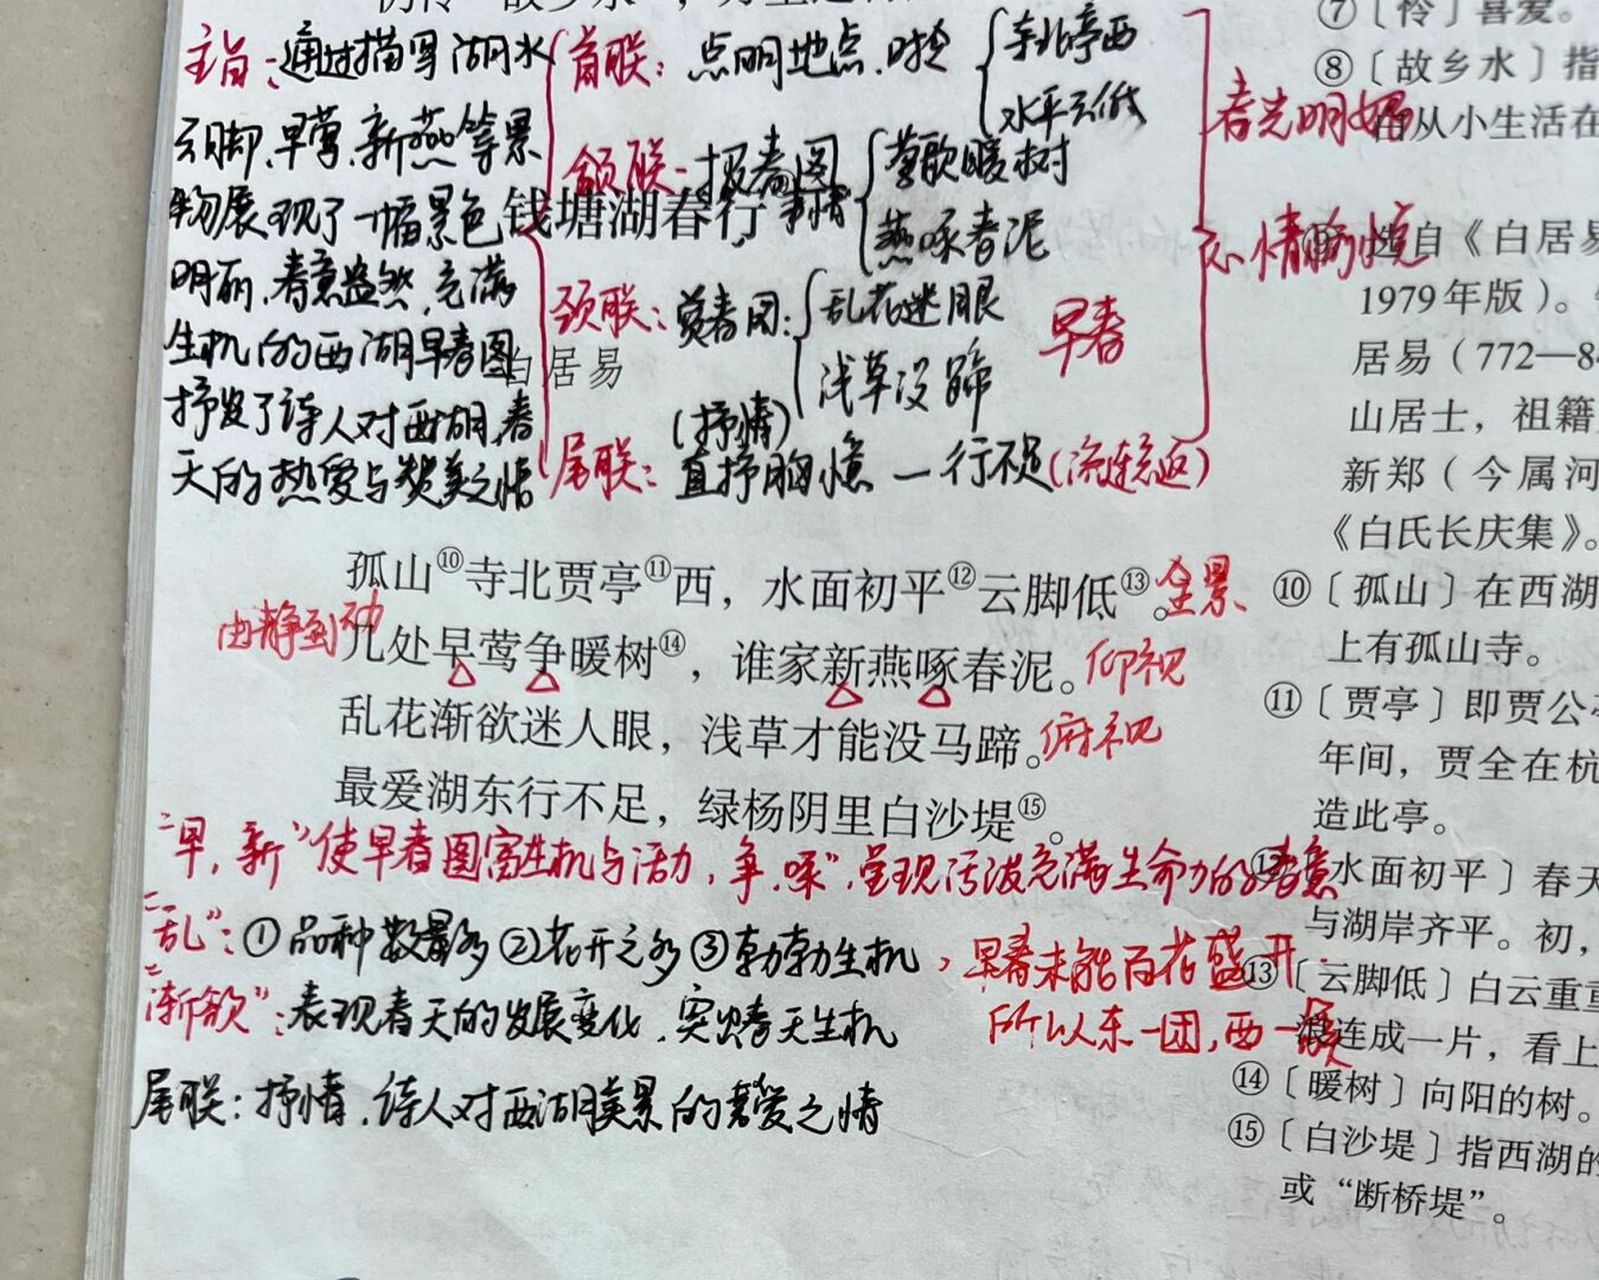 主旨：通过描写湖水
云脚、早莺、新燕等景
物展现了一幅景色
明丽、春意盎然、充满
生机的西湖早春图
抒发了诗人对西湖、春
天的热爱与赞美之情
首联：点明地点、
寺北亭西
水平云低
颔联
莺歌暖树
燕啄春泥
颈联：
乱花迷眼
浅草没蹄
(抒情)
尾联：直抒胸臆 一行不足
春光明媚
心情愉悦
早春
钱塘湖春行
白居易
孤山⑩寺北贾亭⑪西，水面初平⑫云脚低⑬。全景
由静到动
几处早莺争暖树⑭，谁家新燕啄春泥。仰视
乱花渐欲迷人眼，浅草才能没马蹄。俯视
最爱湖东行不足，绿杨阴里白沙堤⑮。
“早，新”使早春图富生机与活力，争、啄”，呈现活泼充满生命力的春意
“乱”：①品种数量多②花开之多③勃勃生机，早春未能百花盛开
所以东一团，西一簇
“渐欲”：表现春天的发展变化，突出春天生机
尾联：抒情，诗人对西湖美景的喜爱之情
⑦〔怜〕喜爱。
⑧〔故乡水〕指
从小生活在
选自《白居易
1979年版）。
居易（772—84
山居士，祖籍
新郑（今属河
《白氏长庆集》。
⑩〔孤山〕在西湖
上有孤山寺。
⑪〔贾亭〕即贾公亭
年间，贾全在杭
造此亭。
⑫水面初平〕春天
与湖岸齐平。初，
⑬〔云脚低〕白云重重
连成一片，看上
⑭〔暖树〕向阳的树。
⑮〔白沙堤〕指西湖的
或“断桥堤”。